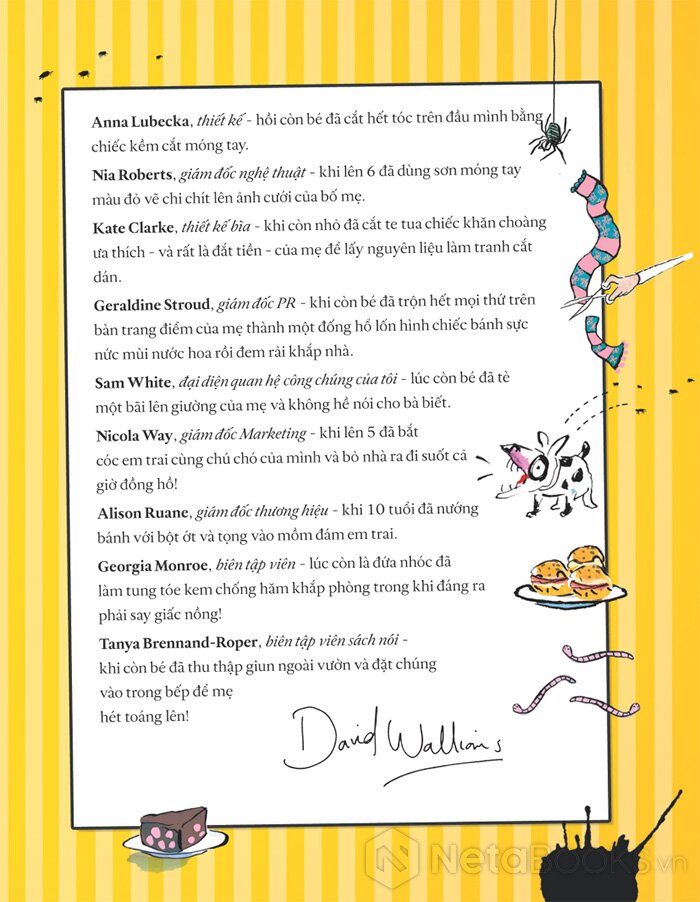 Anna Lubecka, thiết kế - hồi còn bé đã cắt hết tóc trên đầu mình bằng
chiếc kềm cắt móng tay.
Nia Roberts, giám đốc nghệ thuật - khi lên 6 đã dùng sơn móng tay
màu đỏ vẽ chi chít lên ảnh cưới của bố mẹ.
Kate Clarke, thiết kế bìa - khi còn nhỏ đã cắt te tua chiếc khăn choàng
ưa thích - và rất là đắt tiền - của mẹ để lấy nguyên liệu làm tranh cắt
dán.
Geraldine Stroud, giám đốc PR - khi còn bé đã trộn hết mọi thứ trên
bàn trang điểm của mẹ thành một đống hổ lốn hình chiếc bánh sực
nức mùi nước hoa rồi đem rải khắp nhà.
Sam White, đại diện quan hệ công chúng của tôi - lúc còn bé đã tè
một bãi lên giường của mẹ và không hề nói cho bà biết.
Nicola Way, giám đốc Marketing - khi lên 5 đã bắt
cóc em trai cùng chú chó của mình và bỏ nhà ra đi suốt cả
giờ đồng hồ!
Alison Ruane, giám đốc thương hiệu - khi 10 tuổi đã nướng
bánh với bột ớt và tọng vào mồm đám em trai.
Georgia Monroe, biên tập viên - lúc còn là đứa nhóc đã
làm tung tóe kem chống hăm khắp phòng trong khi đáng ra
phải say giấc nồng!
Tanya Brennand-Roper, biên tập viên sách nói -
khi còn bé đã thu thập giun ngoài vườn và đặt chúng
vào trong bếp để mẹ
hét toáng lên!
David Walliams
NetaBooks.vn